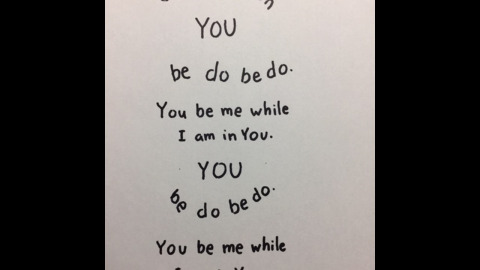 YOU
be do be do.
You be me while
I am in You.
YOU
be do be do.
You be me while